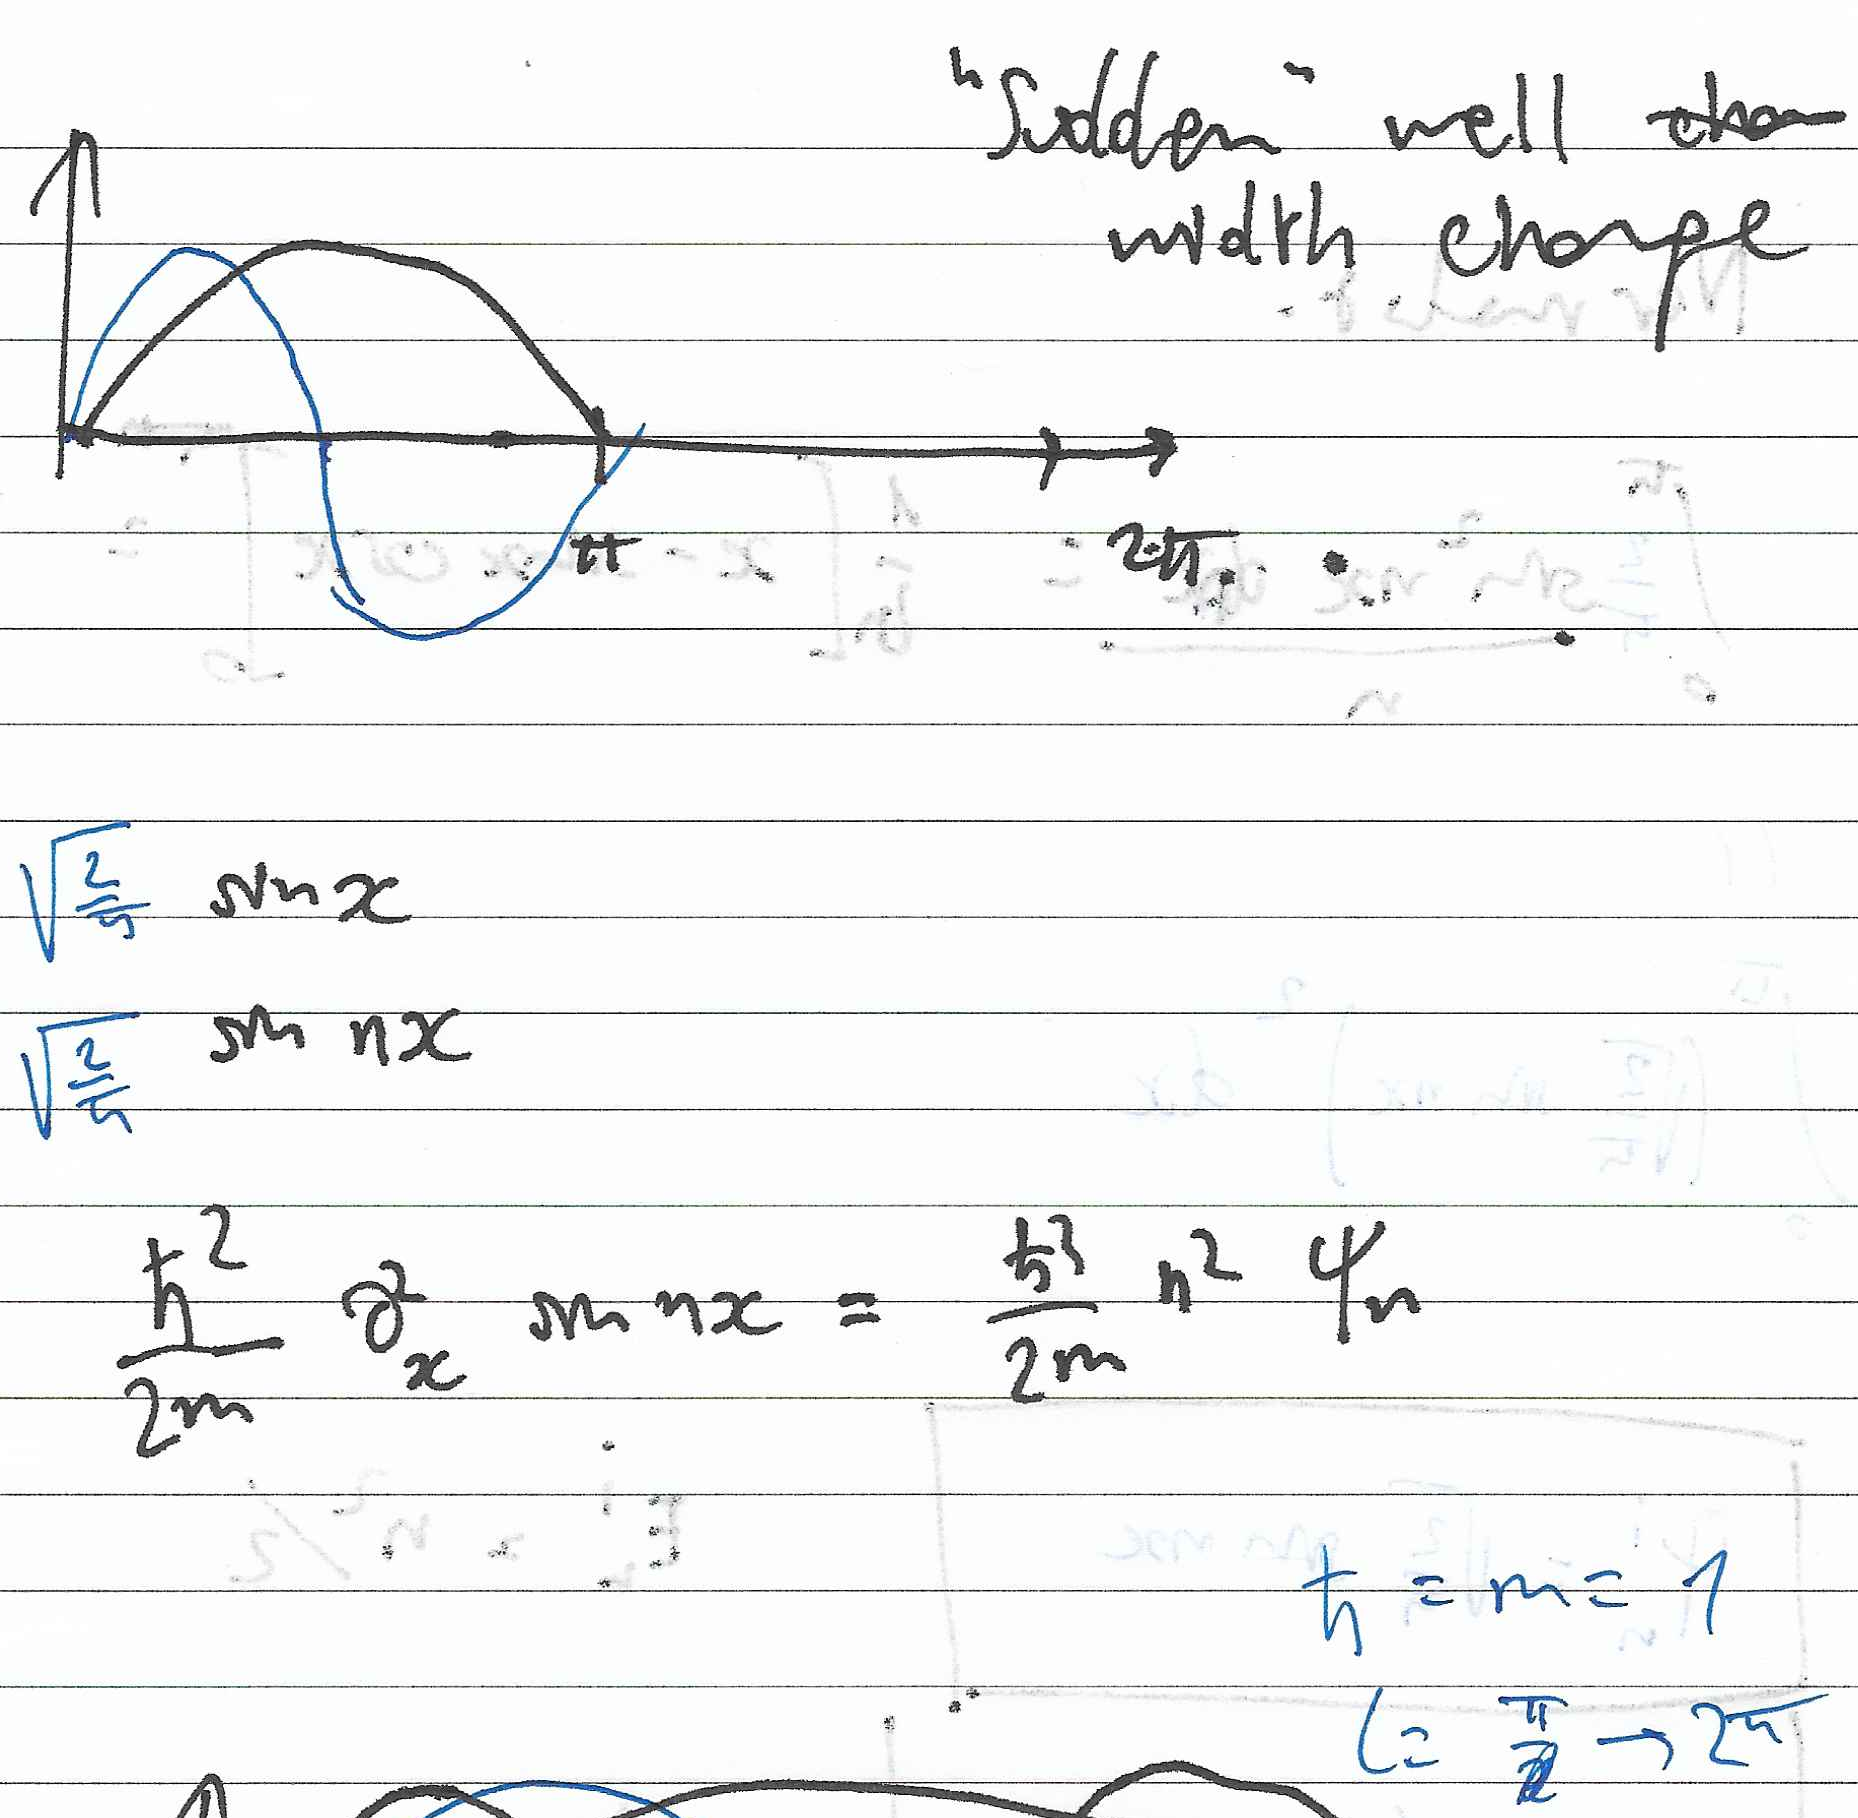 "Sudden" well
width change
π 2π
√(2/π) sin x
√(2/π) sin nx
ħ²/2m ∂²ₓ sin nx = ħ²/2m n² ψₙ
ħ = m = 1
L = π → 2π